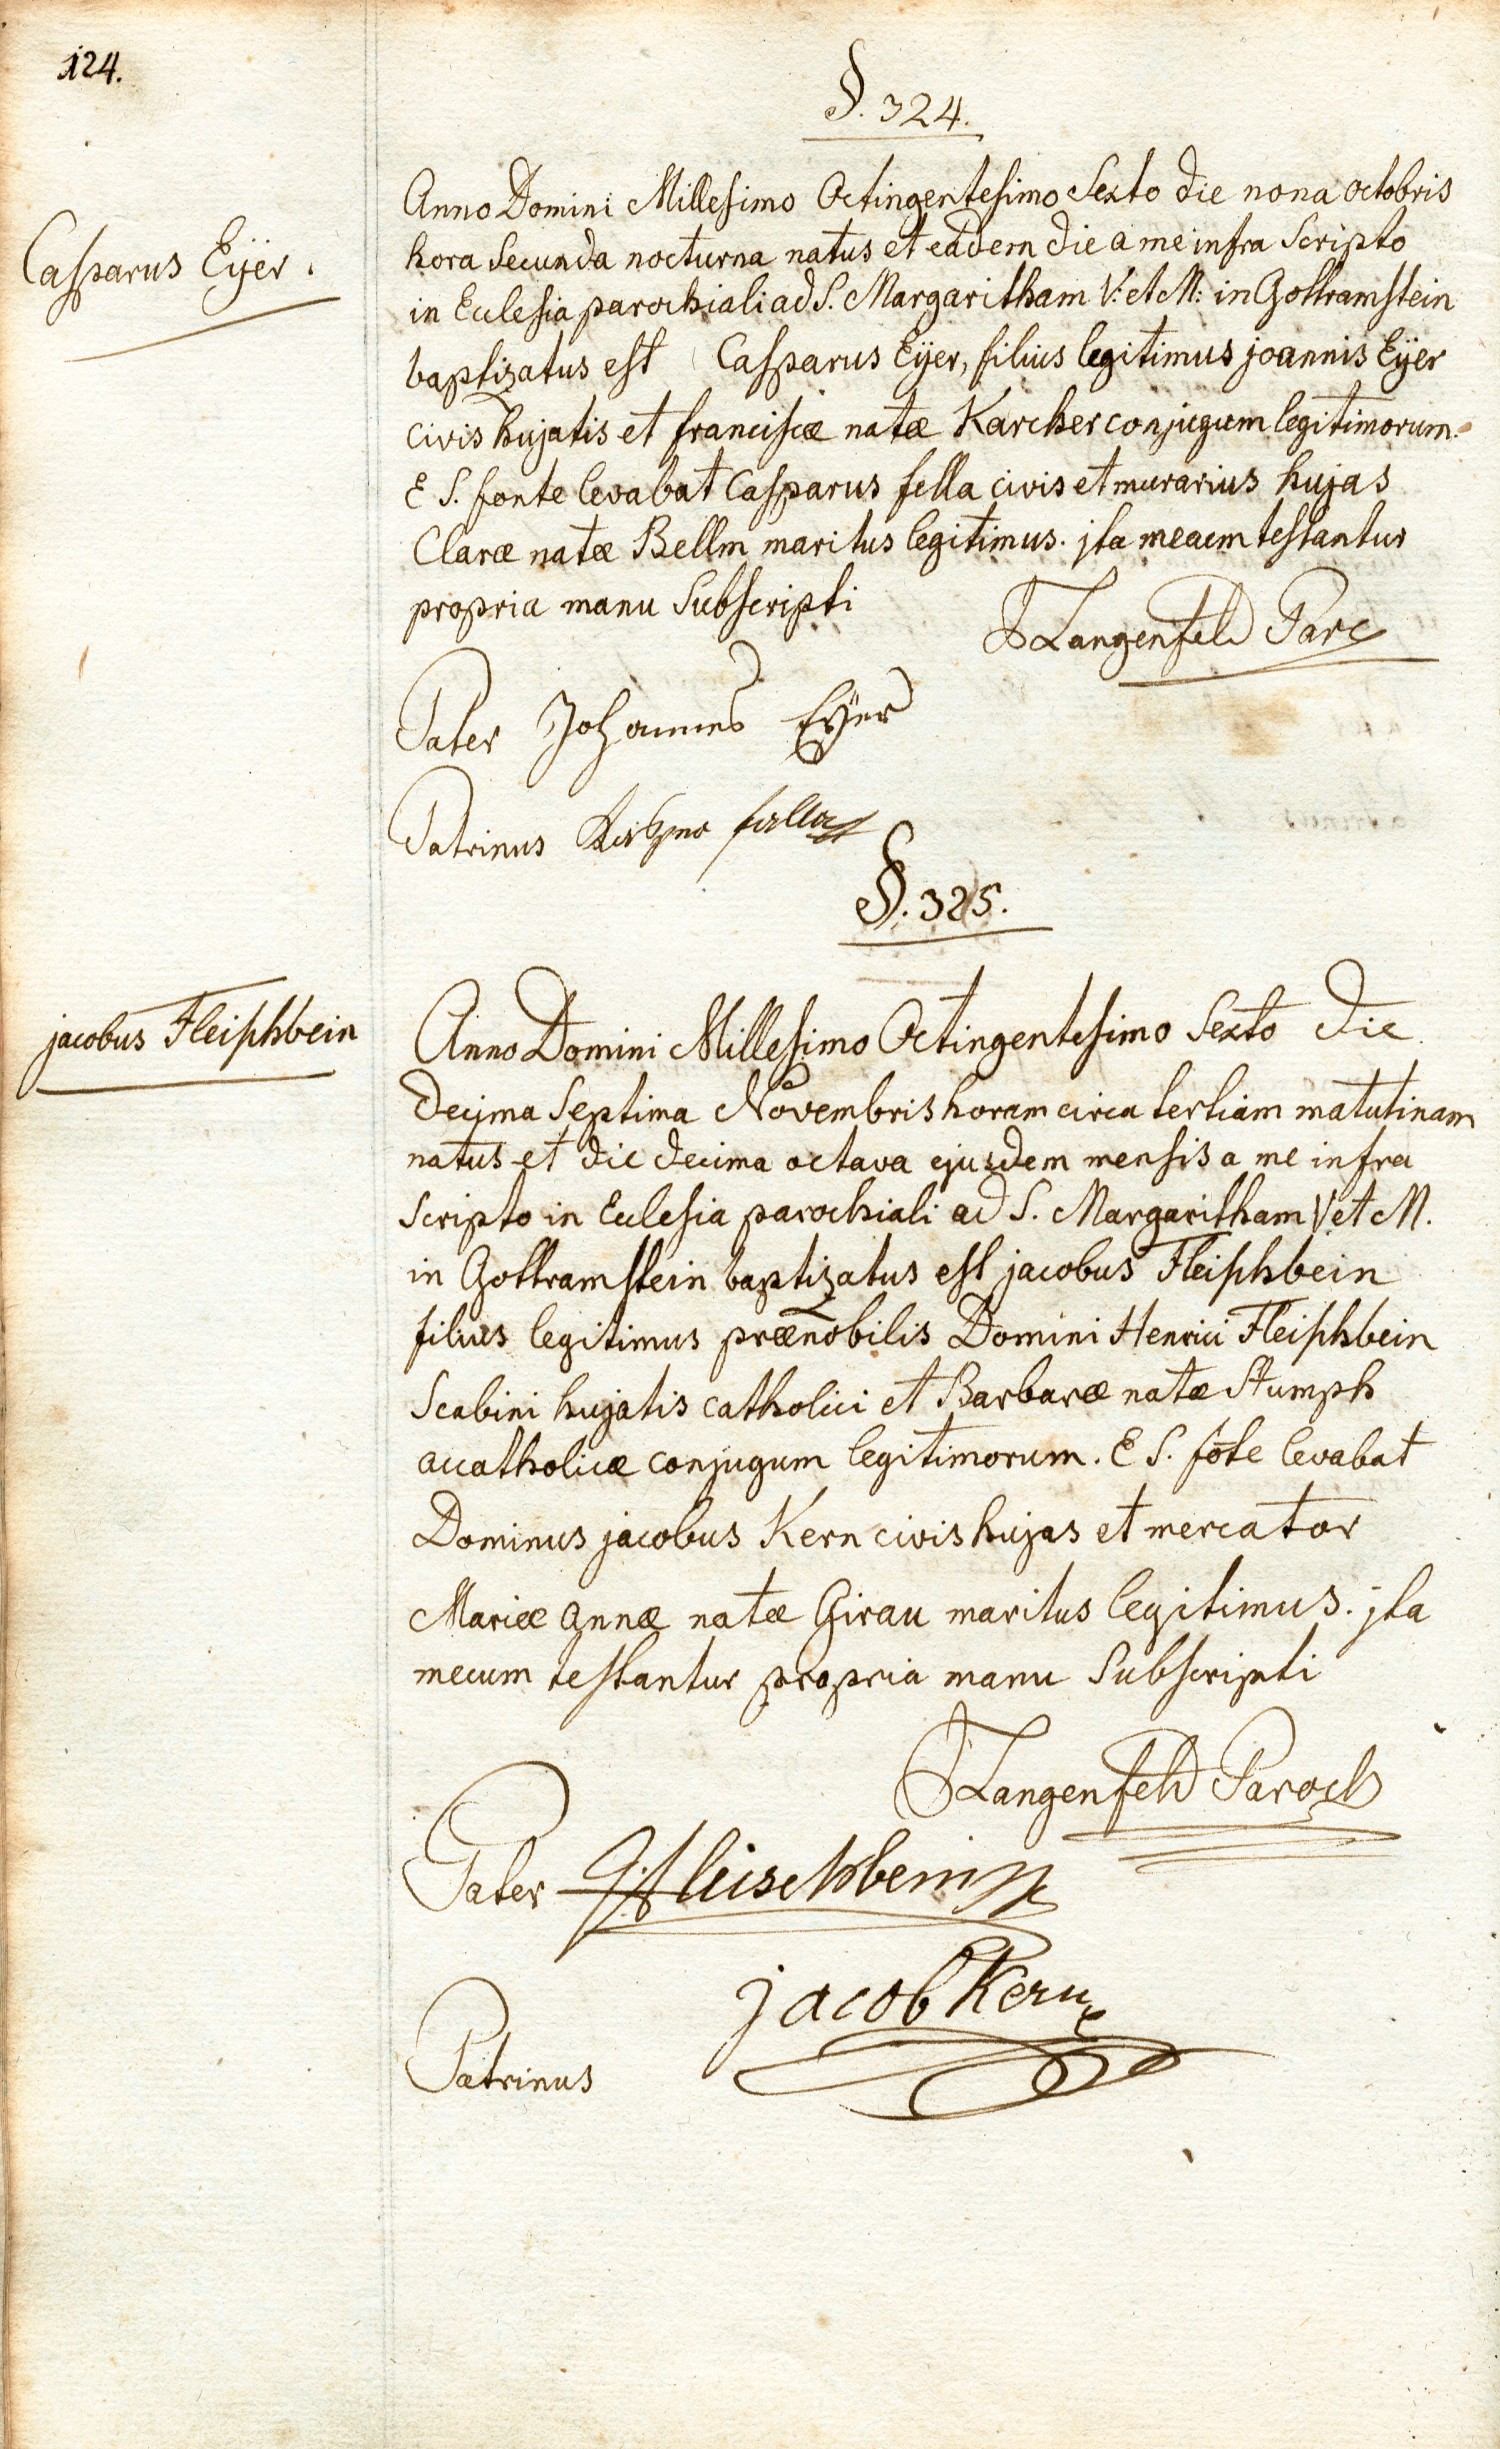 124.
§. 324.
Casparus Eÿer.
Anno Domini Millesimo Octingentesimo Sexto die nona octobris
hora Secunda nocturna natus et eadem die a me infra Scripto
in Eclesia parochiali ad S. Margaritham V: et M: in Gottramstein
baptizatus est Casparus Eÿer, filius legitimus joannis Eÿer
civis hujatis et franciscæ natæ Karcher conjugum legitimorum.
E S. fonte levabat Casparus fella civis et murarius hujas
Claræ natæ Bellm maritus legitimus. jta mecum testantur
propria manu Subscripti
Langenfeld Parc
Pater Johannes Eÿer
Patrinus fella
§. 325.
jacobus Fleischbein
Anno Domini Millesimo Octingentesimo Sexto die
decima Septima Novembris horam circa tertiam matutinam
natus et die decima octava ejusdem mensis a me infra
Scripto in Eclesia parochiali ad S. Margaritham V et M.
in Gottramstein baptizatus est jacobus Fleischbein
filius legitimus prænobilis Domini Henrici Fleischbein
Scabini hujatis catholici et Barbaræ natæ Stumph
acatholicæ conjugum legitimorum. E S. fōte levabat
Dominus jacobus Kern civis hujas et mercator
Mariæ annæ natæ Girau maritus legitimus. jta
mecum testantur propria manu Subscripti
Langenfeld Paroch
Pater Fleischbein
jacob Kern
Patrinus